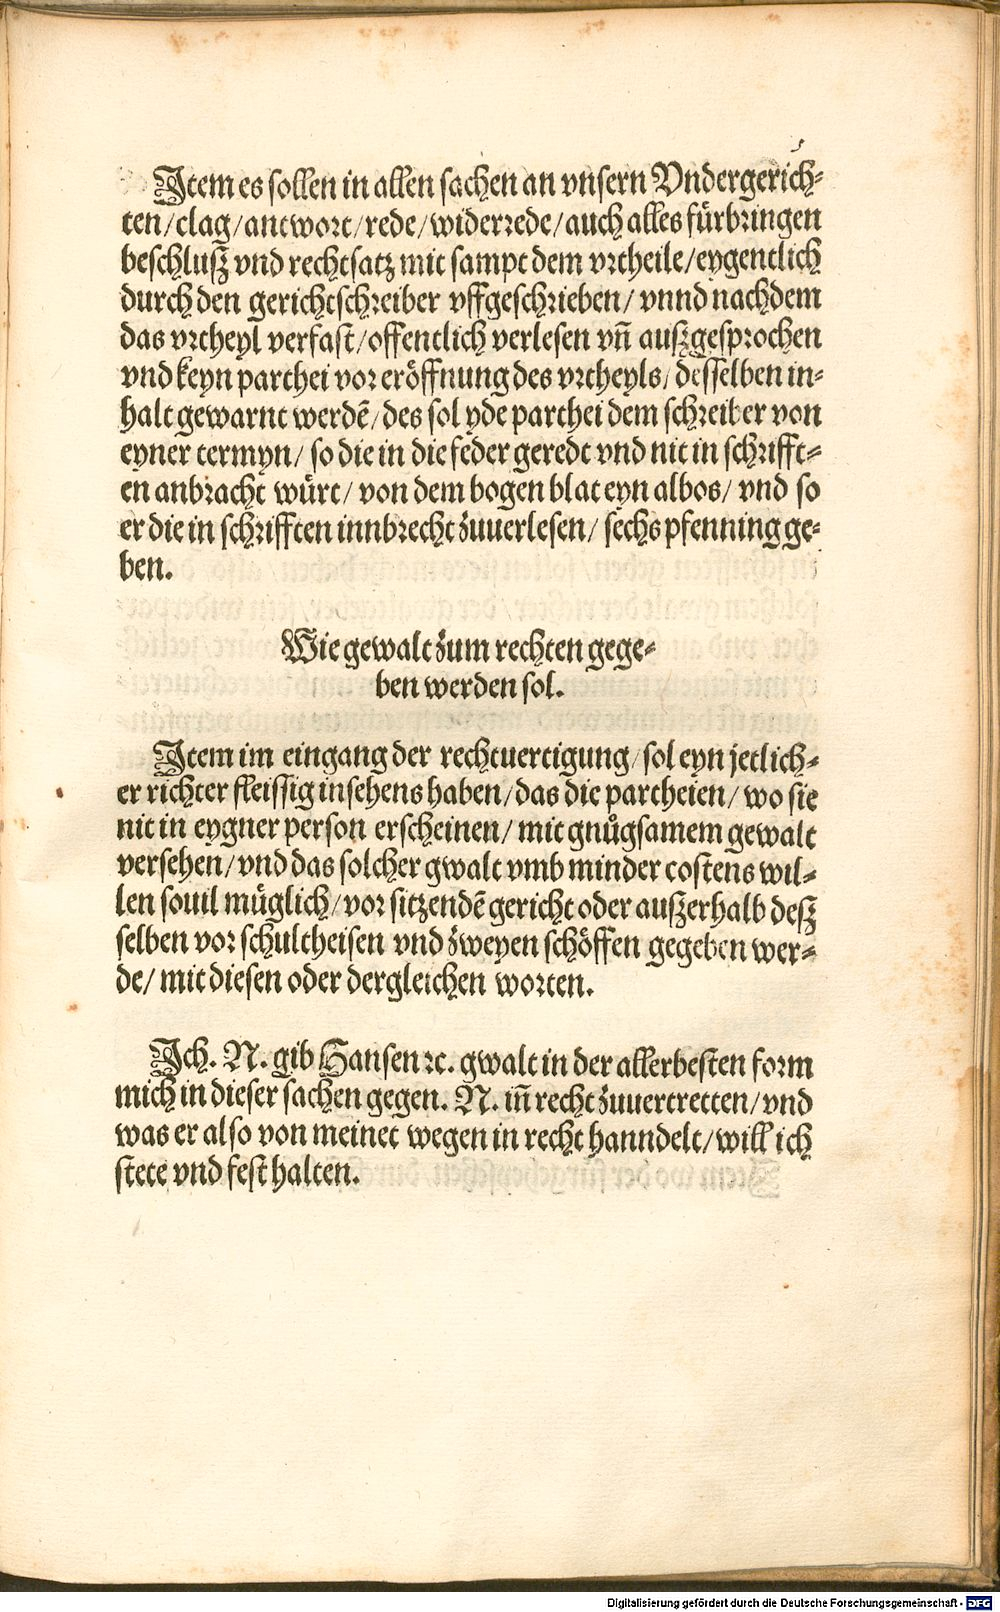 Item es sollen in allen sachen an vnsern Vndergerich⸗
ten/clag/antwort/rede/widerrede/auch alles fürbringen
beschlusz vnd rechtsatz mit sampt dem vrtheile/eygentlich
durch den gerichtschreiber vffgeschrieben/ vnnd nachdem
das vrtheyl verfast/offentlich verlesen vn̄ auszgesprochen
vnd keyn parthei vor eröffnung des vrtheyls/ desselben in⸗
halt gewarnt werdē/des sol yde parthei dem schreiber von
eyner termyn/ so die in die feder geredt vnd nit in schrifft⸗
en anbracht würt/ von dem bogen blat eyn albos/ vnd so
er die in schrifften innbrecht zuuerlesen/ sechs pfenning ge⸗
ben.
Wie gewalt zum rechten gege⸗
ben werden sol.
Item im eingang der rechtuertigung/sol eyn jetlich⸗
er richter fleissig insehens haben/das die partheien/ wo sie
nit in eygner person erscheinen/ mit gnůgsamem gewalt
versehen/vnd das solcher gwalt vmb minder costens wil⸗
len souil müglich/vor sitzendē gericht oder auszerhalb desz
selben vor schultheisen vnd zweyen schöffen gegeben wer⸗
de/ mit diesen oder dergleichen worten.
Ich. N. gib Hansen ⁊c. gwalt in der allerbesten form
mich in dieser sachen gegen. N. in̄ recht zuuertretten/vnd
was er also von meinet wegen in recht hanndelt/will ich
stete vnd fest halten.
Digitalisierung gefördert durch die Deutsche Forschungsgemeinschaft - DFG